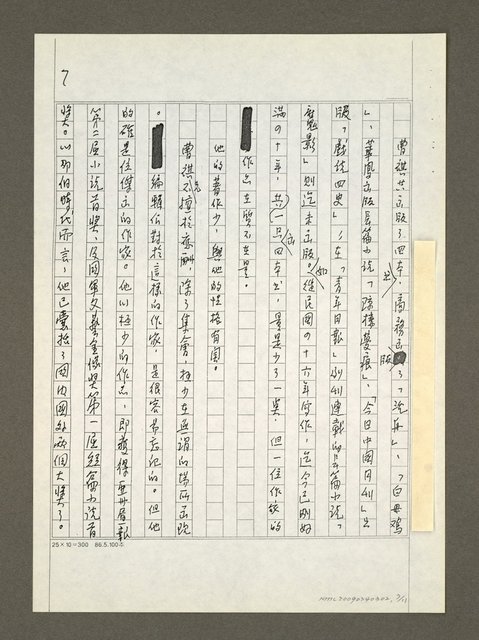 7
曹祺共出版了四本，商務出版了「流再」、「白母鸡
」、華陽出版長篇小說「珠樓夢痕」、「今日中國月刊」出
版「戲說四史」，在「青年日報」副刊連載的長篇小說「
魔影」則迄未出版。從民國四十六年寫作，迄今已剛好
滿四十年，共只出四本書，量是少了一點，但一位作家的
作品在質不在量。
他的著作少，與他的性格有關。
曹祺不擅於應酬，除了集會，極少在無謂的場所出現
。編輯们對於這樣的作家，是很容易忘記的。但他
的確是位傑出的作家。他以極少的作品，即獲得亞洲周報
第二屆小說首獎，及國軍文藝金像獎第一屆短篇小說首
獎。以那個時代而言，他已囊括了國內國外兩個大獎了。
25×10＝300 86.5.100本
NMTL20090240302 7/11